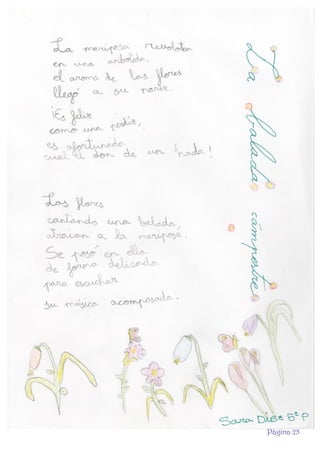 La balada campestre
La mariposa revolotea
en una arboleda,
el aroma de las flores
llegó a su nariz.
¡Es feliz
como una perdiz,
es afortunada
cual el don de un hada!
Las flores
cantando una balada,
atraían a la mariposa.
Se posó en ella
de forma delicada
para escuchar
su música acompasada.
Sara Díez 5º P
Página 25